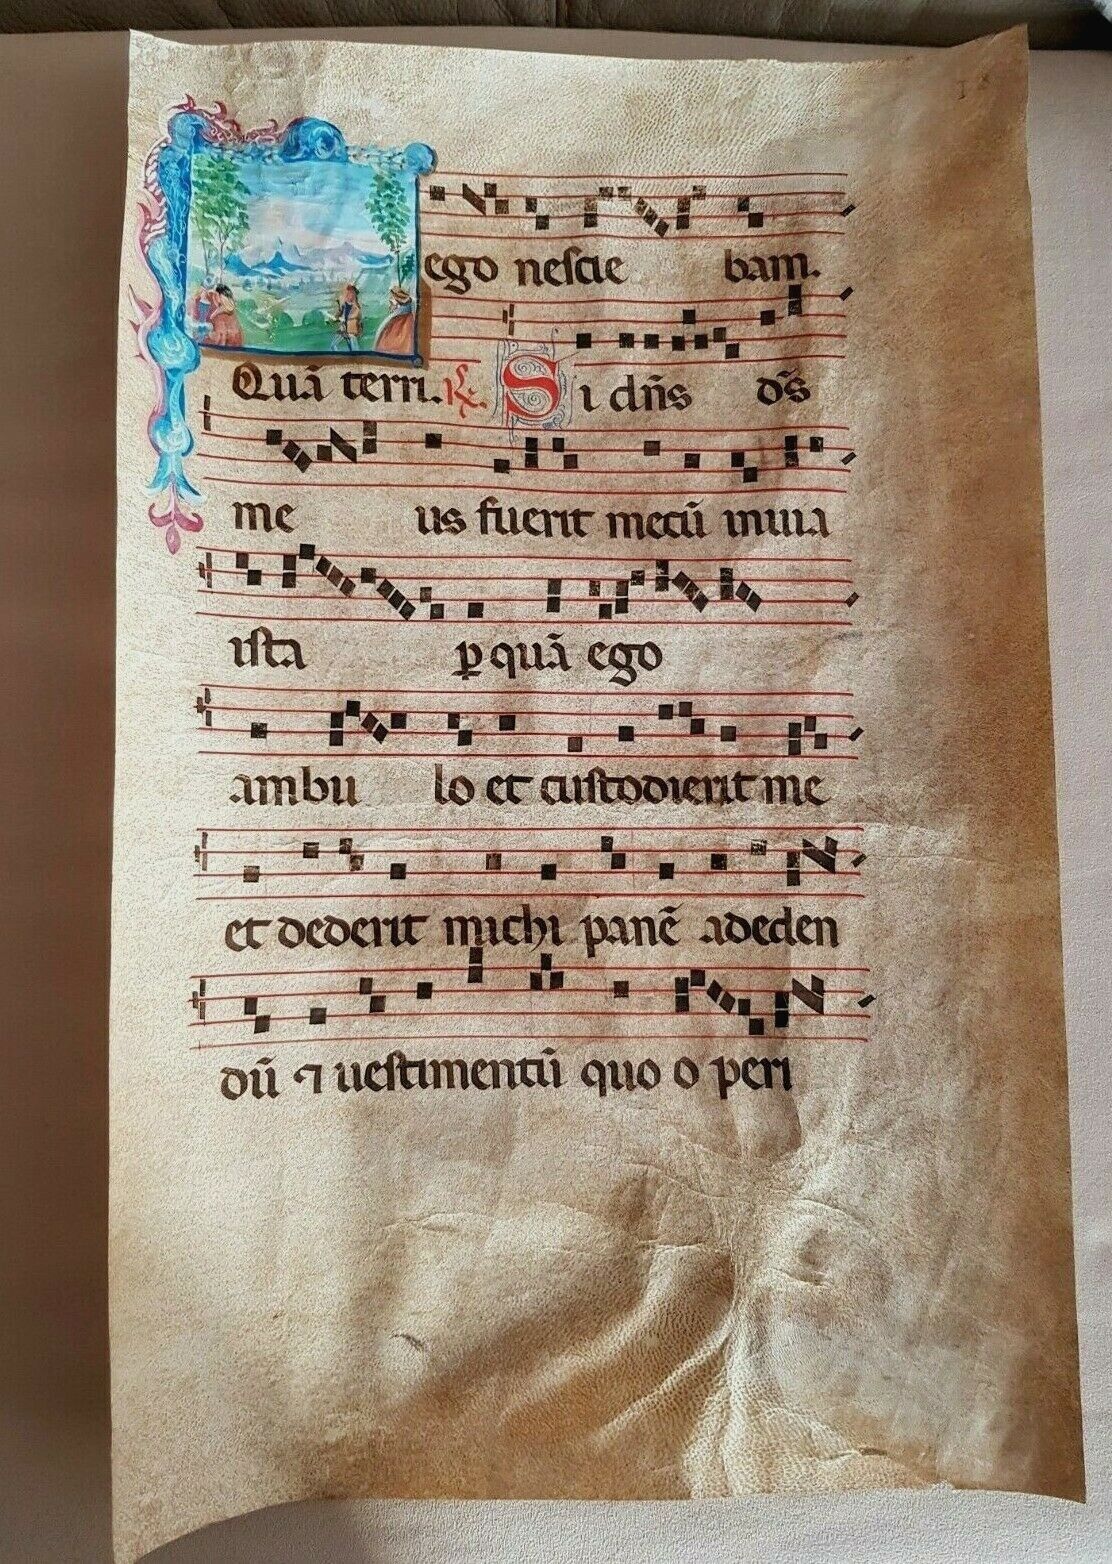 ego nescie bam.
Quā terri. ℟. Si dn̄s ds̄
me us fuerit mecū inuia
ista ꝑ quā ego
ambu lo et custodierit me
et dederit michi panē adeden
dū ⁊ uestimentū quo o peri